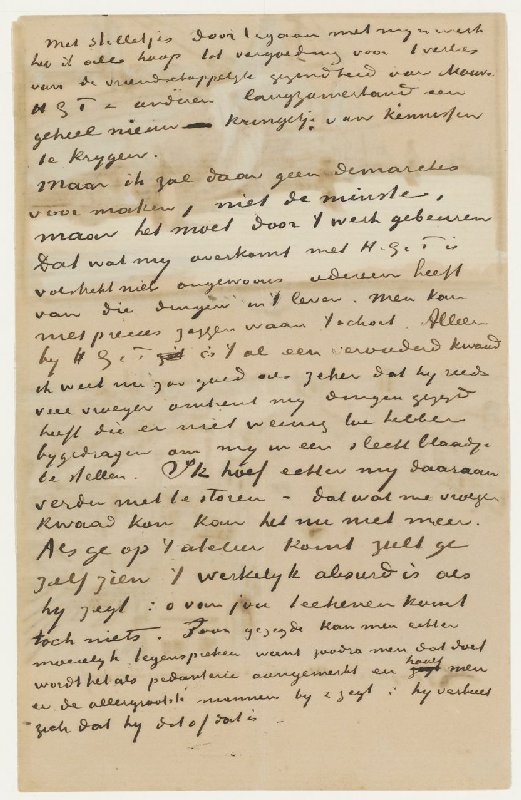 Met stilletjes door te gaan met mijn werk
heb ik alles hoop tot vergoeding voor 't verlies
van de vriendschappelijke gezindheid van Mauve
H G T e anderen langzamerhand een
geheel nieuw — kringetje van kennissen
te krygen.
Maar ik zal daar geen demarches
voor maken, niet de minste,
maar het moet door 't werk gebeuren
Dat wat my overkomt met H.G.T is
volstrekt niets ongewoons iedereen heeft
van die dingen in 't leven. Men kan
niet precies zeggen waar 't schort. Alleen
by H G T is 't al een verouderd kwaad
ik weet nu zoo goed als zeker dat hy reeds
veel vroeger omtrent my dingen gezegd
heeft die er niet weinig toe hebben
bygedragen om my in een slecht blaadje
te stellen. Ik hoef echter my daaraan
verder niet te storen – dat wat me vroeger
kwaad kon kan het nu niet meer.
Als ge op 't atelier komt zult ge
zelf zien 't werkelyk absurd is als
hy zegt : o van jou teekenen komt
toch niets. Zoo'n gezegde kan men echter
moeielyk tegenspreken want zoodra men dat doet
wordt het als pedanterie aangemerkt en haalt men
er de allergrootste mannen by e zegt : hy verbeeldt
zich dat hy dit of dat is